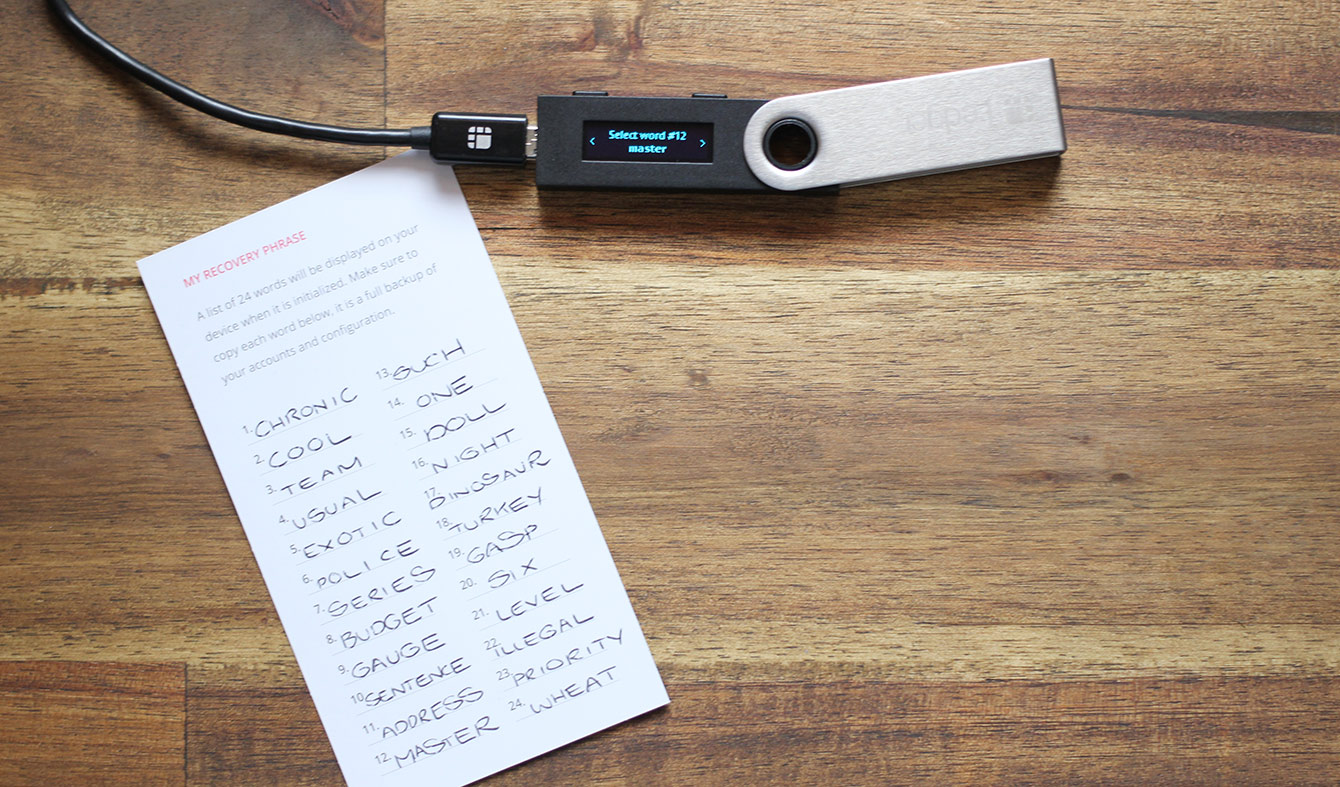 Select word #12
master
MY RECOVERY PHRASE
A list of 24 words will be displayed on your
device when it is initialized. Make sure to
copy each word below, it is a full backup of
your accounts and configuration.
1. CHRONIC
2. COOL
3. TEAM
4. USUAL
5. EXOTIC
6. POLICE
7. SERIES
8. BUDGET
9. GAUGE
10. SENTENCE
11. ADDRESS
12. MASTER
13. SUCH
14. ONE
15. DOLL
16. NIGHT
17. DINOSAUR
18. TURKEY
19. GASP
20. SIX
21. LEVEL
22. ILLEGAL
23. PRIORITY
24. WHEAT